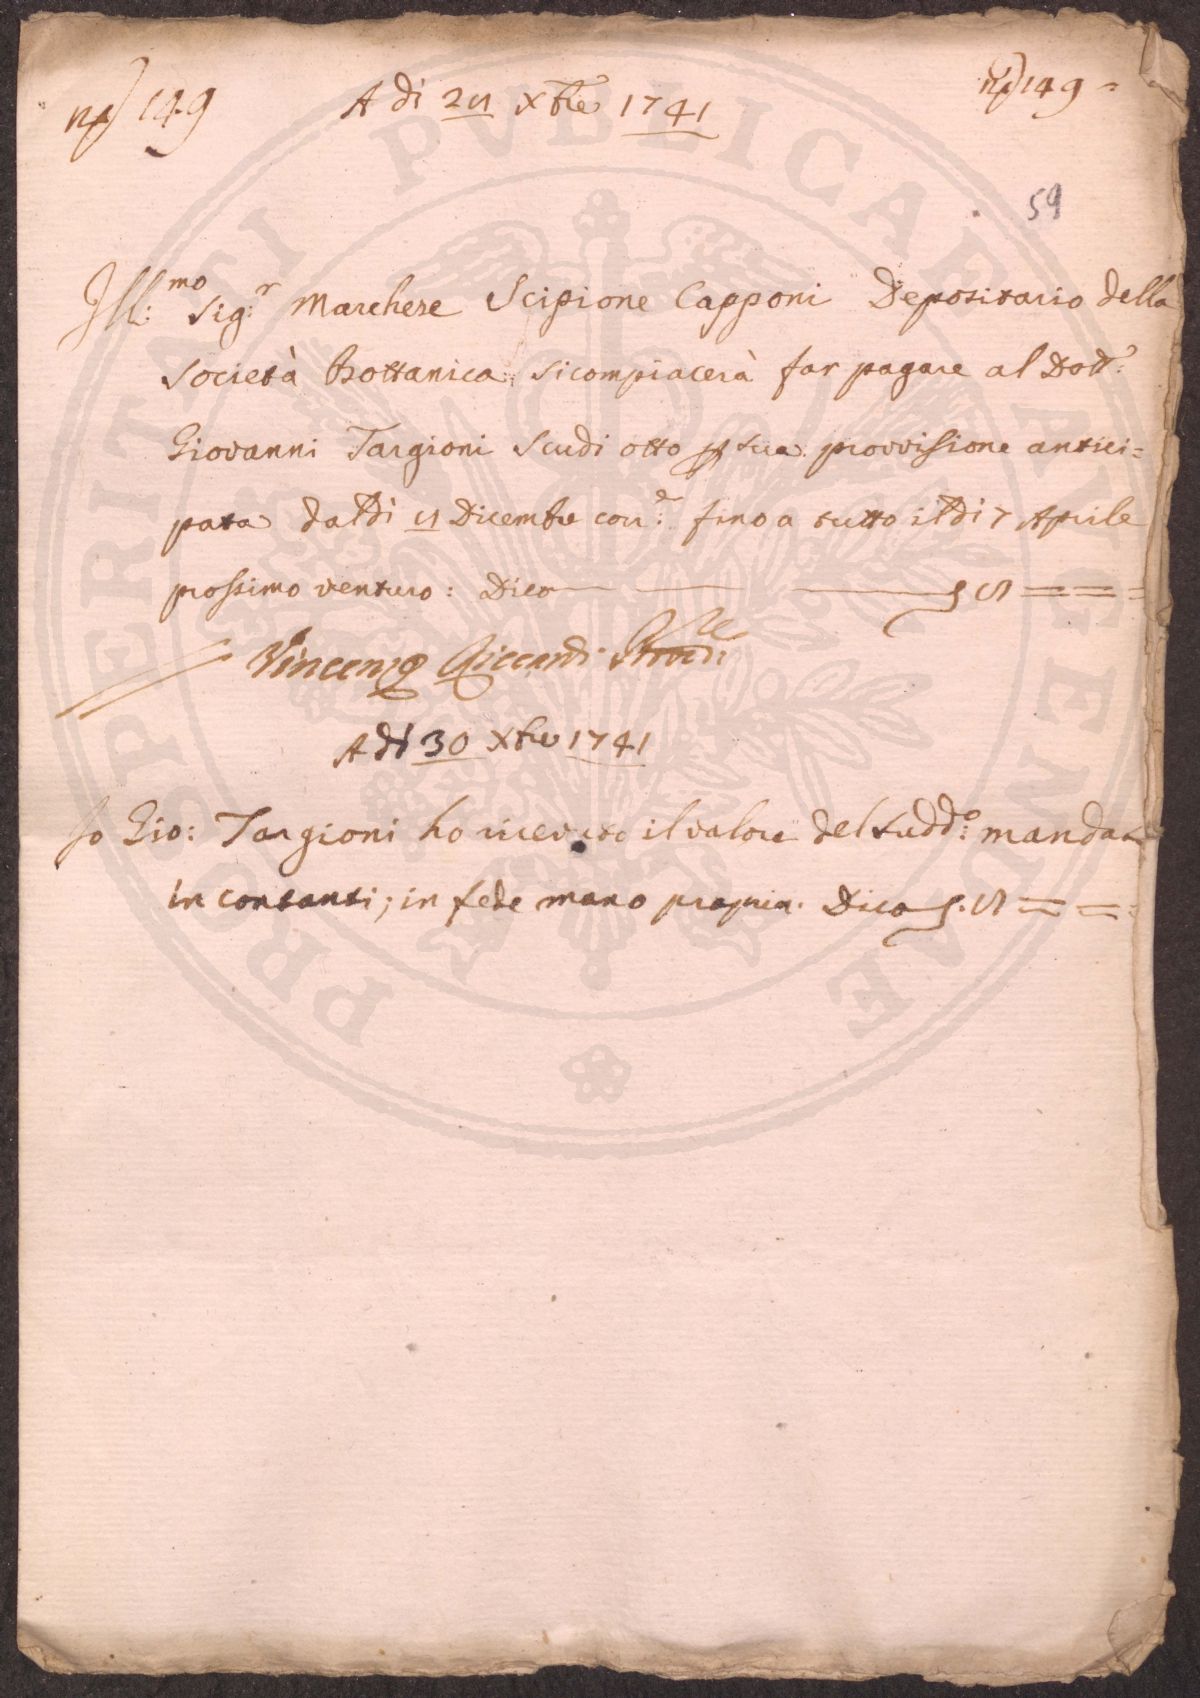 n.° 149
A dì 28 Xbre 1741
n.° 149 =
59
Ill:mo Sig:r Marchese Scipione Capponi Depositario della
Società Bottanica, si compiacerà far pagare al Dott:
Giovanni Targioni Scudi otto p sua provvisione antici=
pata dal dì 8 Dicembre corr:e fino a tutto il dì 7 Aprile
prossimo venturo: Dico — — — 8 = = =
Vincenzo Riccardi
A dì 30 Xbre 1741
Io Gio: Targioni ho ricevuto il valore del sudd:o mandato
in contanti; in fede mano propria. Dico . 8 = = =
PROSPERITATI PVBLICAE AVGENDAE